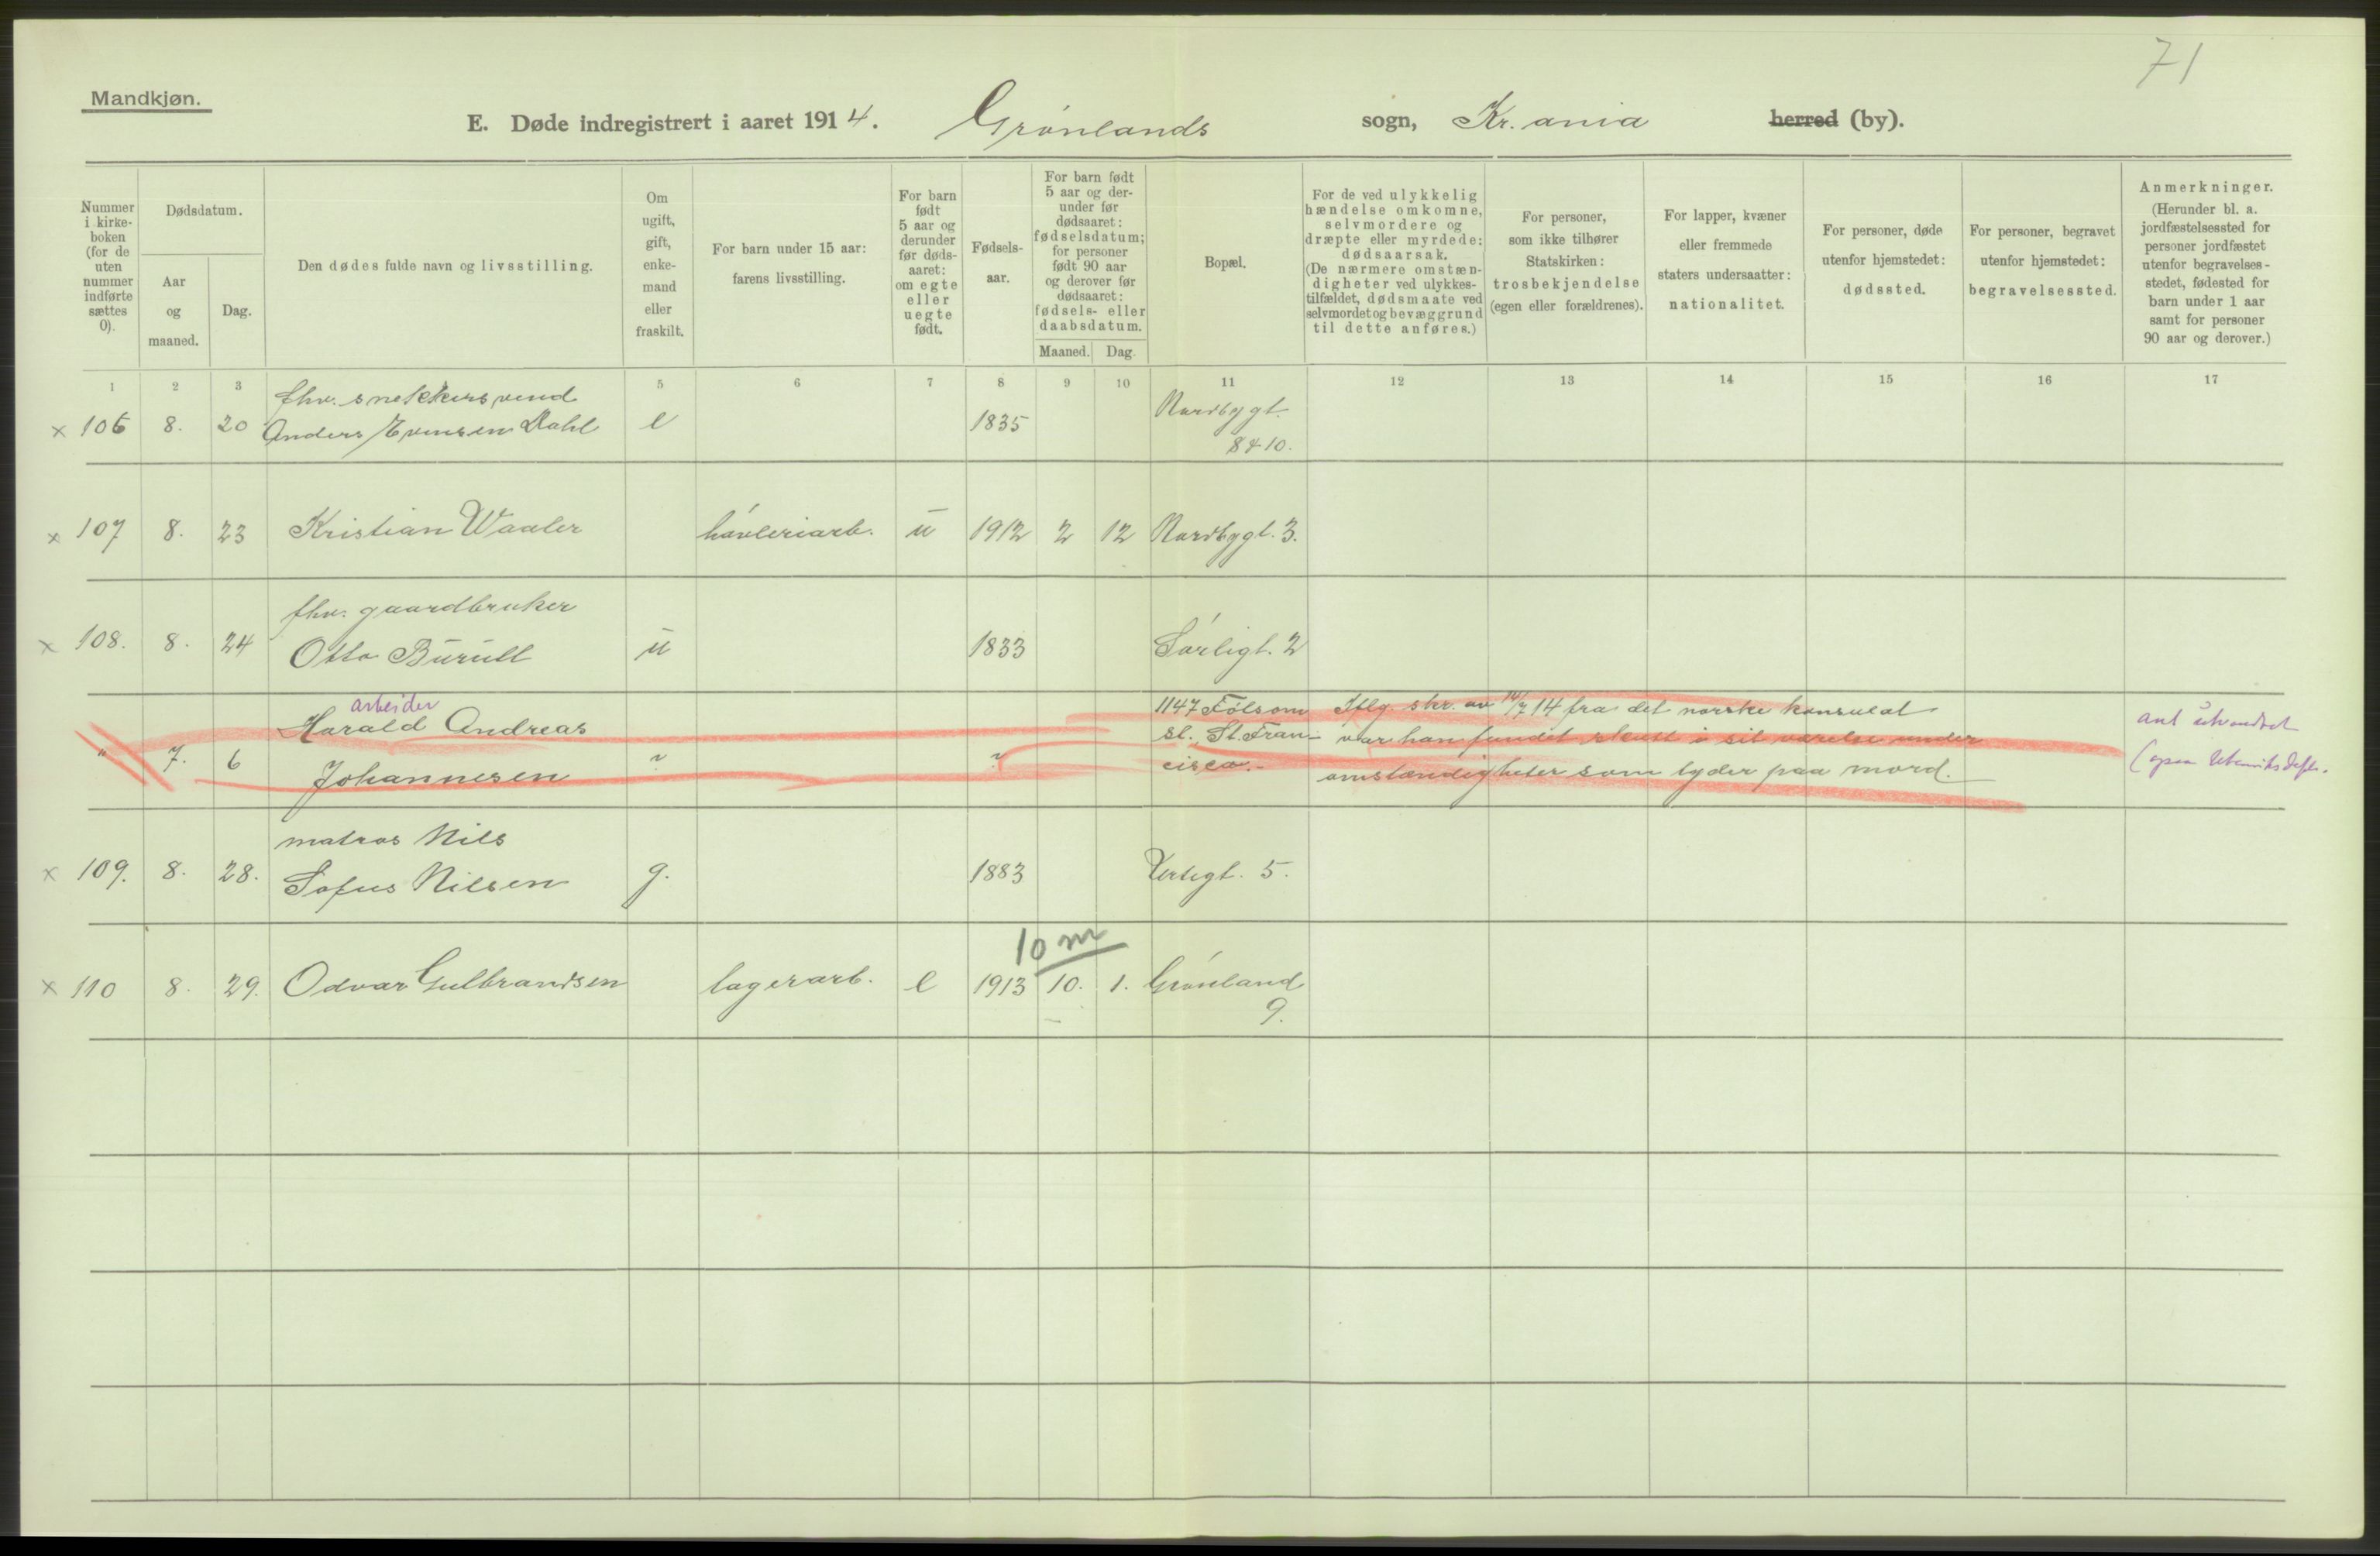 71
Mandkjøn.
E. Døde indregistrert i aaret 1914. Grønlands sogn, Kr.ania herred (by).
Nummer i kirke-boken (for de uten nummer indførte sættes 0).
Dødsdatum.
Aar og maaned.
Dag.
Den dødes fulde navn og livsstilling.
Om ugift, gift, enke-mand eller fraskilt.
For barn under 15 aar: farens livsstilling.
For barn født 5 aar og derunder før døds-aaret: om egte eller uegte født.
Fødsels-aar.
For barn født 5 aar og der-under før dødsaaret: fødselsdatum; for personer født 90 aar og derover før dødsaaret: fødsels- eller daabsdatum.
Maaned. Dag.
Bopæl.
For de ved ulykkelig hændelse omkomne, selvmordere og dræpte eller myrdede: dødsaarsak. (De nærmere omstæn-digheter ved ulykkes-tilfældet, dødsmaate ved selvmordet og bevæggrund til dette anføres.)
For personer, som ikke tilhører Statskirken: trosbekjendelse (egen eller forældrenes).
For lapper, kvæner eller fremmede staters undersaatter: nationalitet.
For personer, døde utenfor hjemstedet: dødssted.
For personer, begravet utenfor hjemstedet: begravelsessted.
Anmerkninger. (Herunder bl. a. jordfæstelsessted for personer jordfæstet utenfor begravelses-stedet, fødested for barn under 1 aar samt for personer 90 aar og derover.)
1 2 3 5 6 7 8 9 10 11 12 13 14 15 16 17
fhv. snekkersvend
x 106 8. 20 Anders Evensen Dahl e 1835 Nordbygt. 8 & 10.
x 107 8. 23 Kristian Waaler høvleriarb. u 1912 2 12 Nordbygt. 3.
fhv. gaardbruker
x 108. 8. 24 Otto Burull u 1833 Sørligt. 2
arbeider
Harald Andreas 1147 Folsom Iflg. skr. av 14/7 14 fra det norske konsulat
st. St. Fran- var han fundet skutt i sit værelse under
" 7. 6 Johannesen ~ ~ cisco.- omstændigheter som tyder paa mord.
ant utvandret
matros Nils
x 109. 8. 28. Sofus Nilsen g. 1883 Urtegt. 5.
10 m
x 110 8. 29. Odvar Gulbrandsen lagerarb. e 1913 10. 1. Grønland 9.